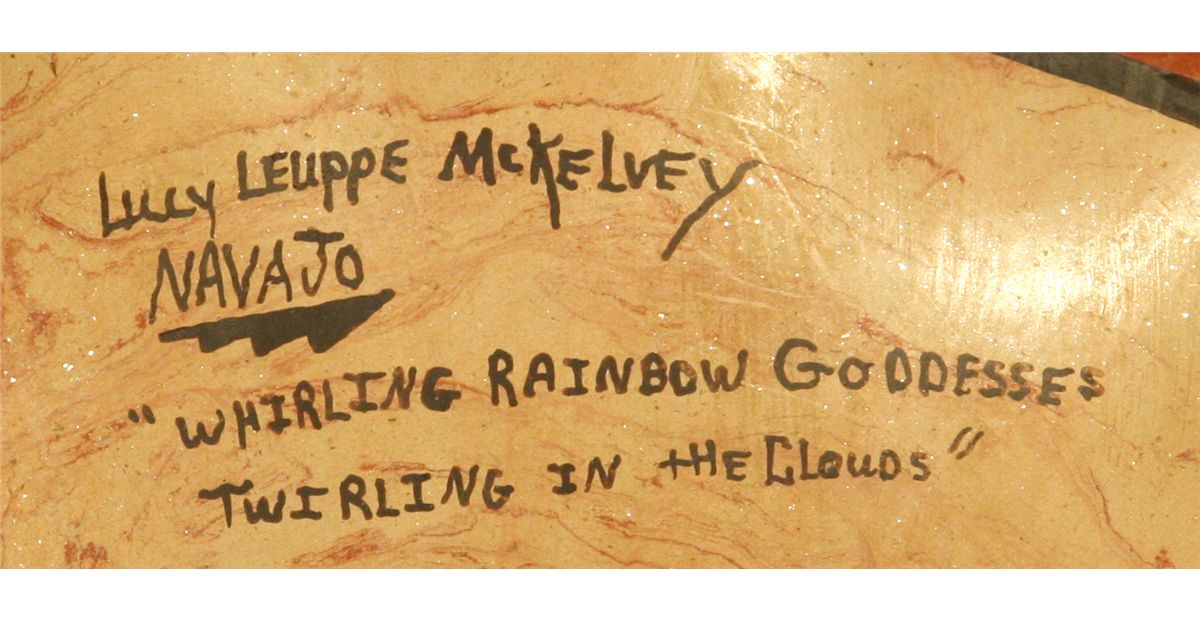 Lucy LEUPPE McKELVEY
NAVAJO
"WHIRLING RAINBOW GODDESSES
TWIRLING IN tHE CLOUDS"